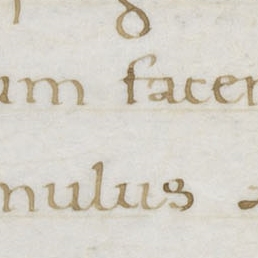 um facer
mulus